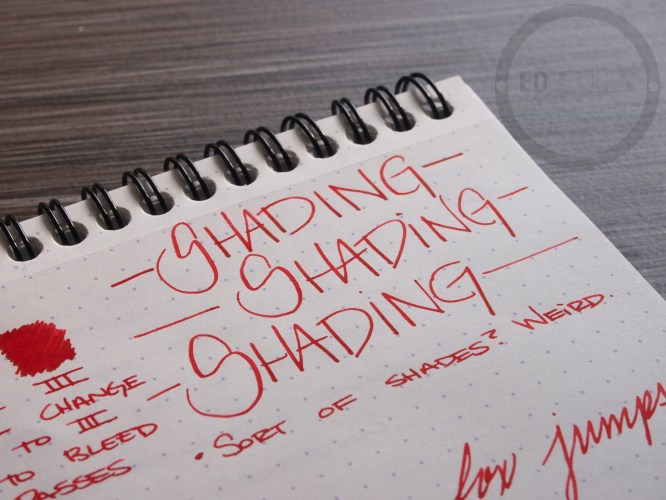 SHADING
SHADING
SHADING
• SORT OF SHADES? WEIRD.
III
CHANGE
TO III
TO BLEED
PASSES
fox jumps